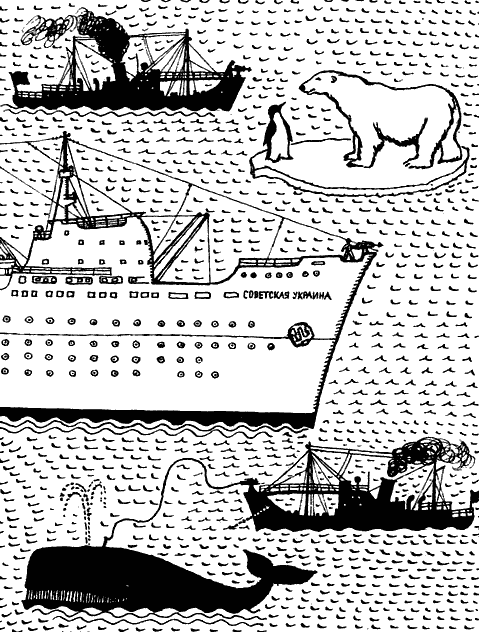 СОВЕТСКАЯ УКРАИНА